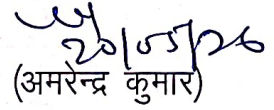 20/05/26
(अमरेन्द्र कुमार)